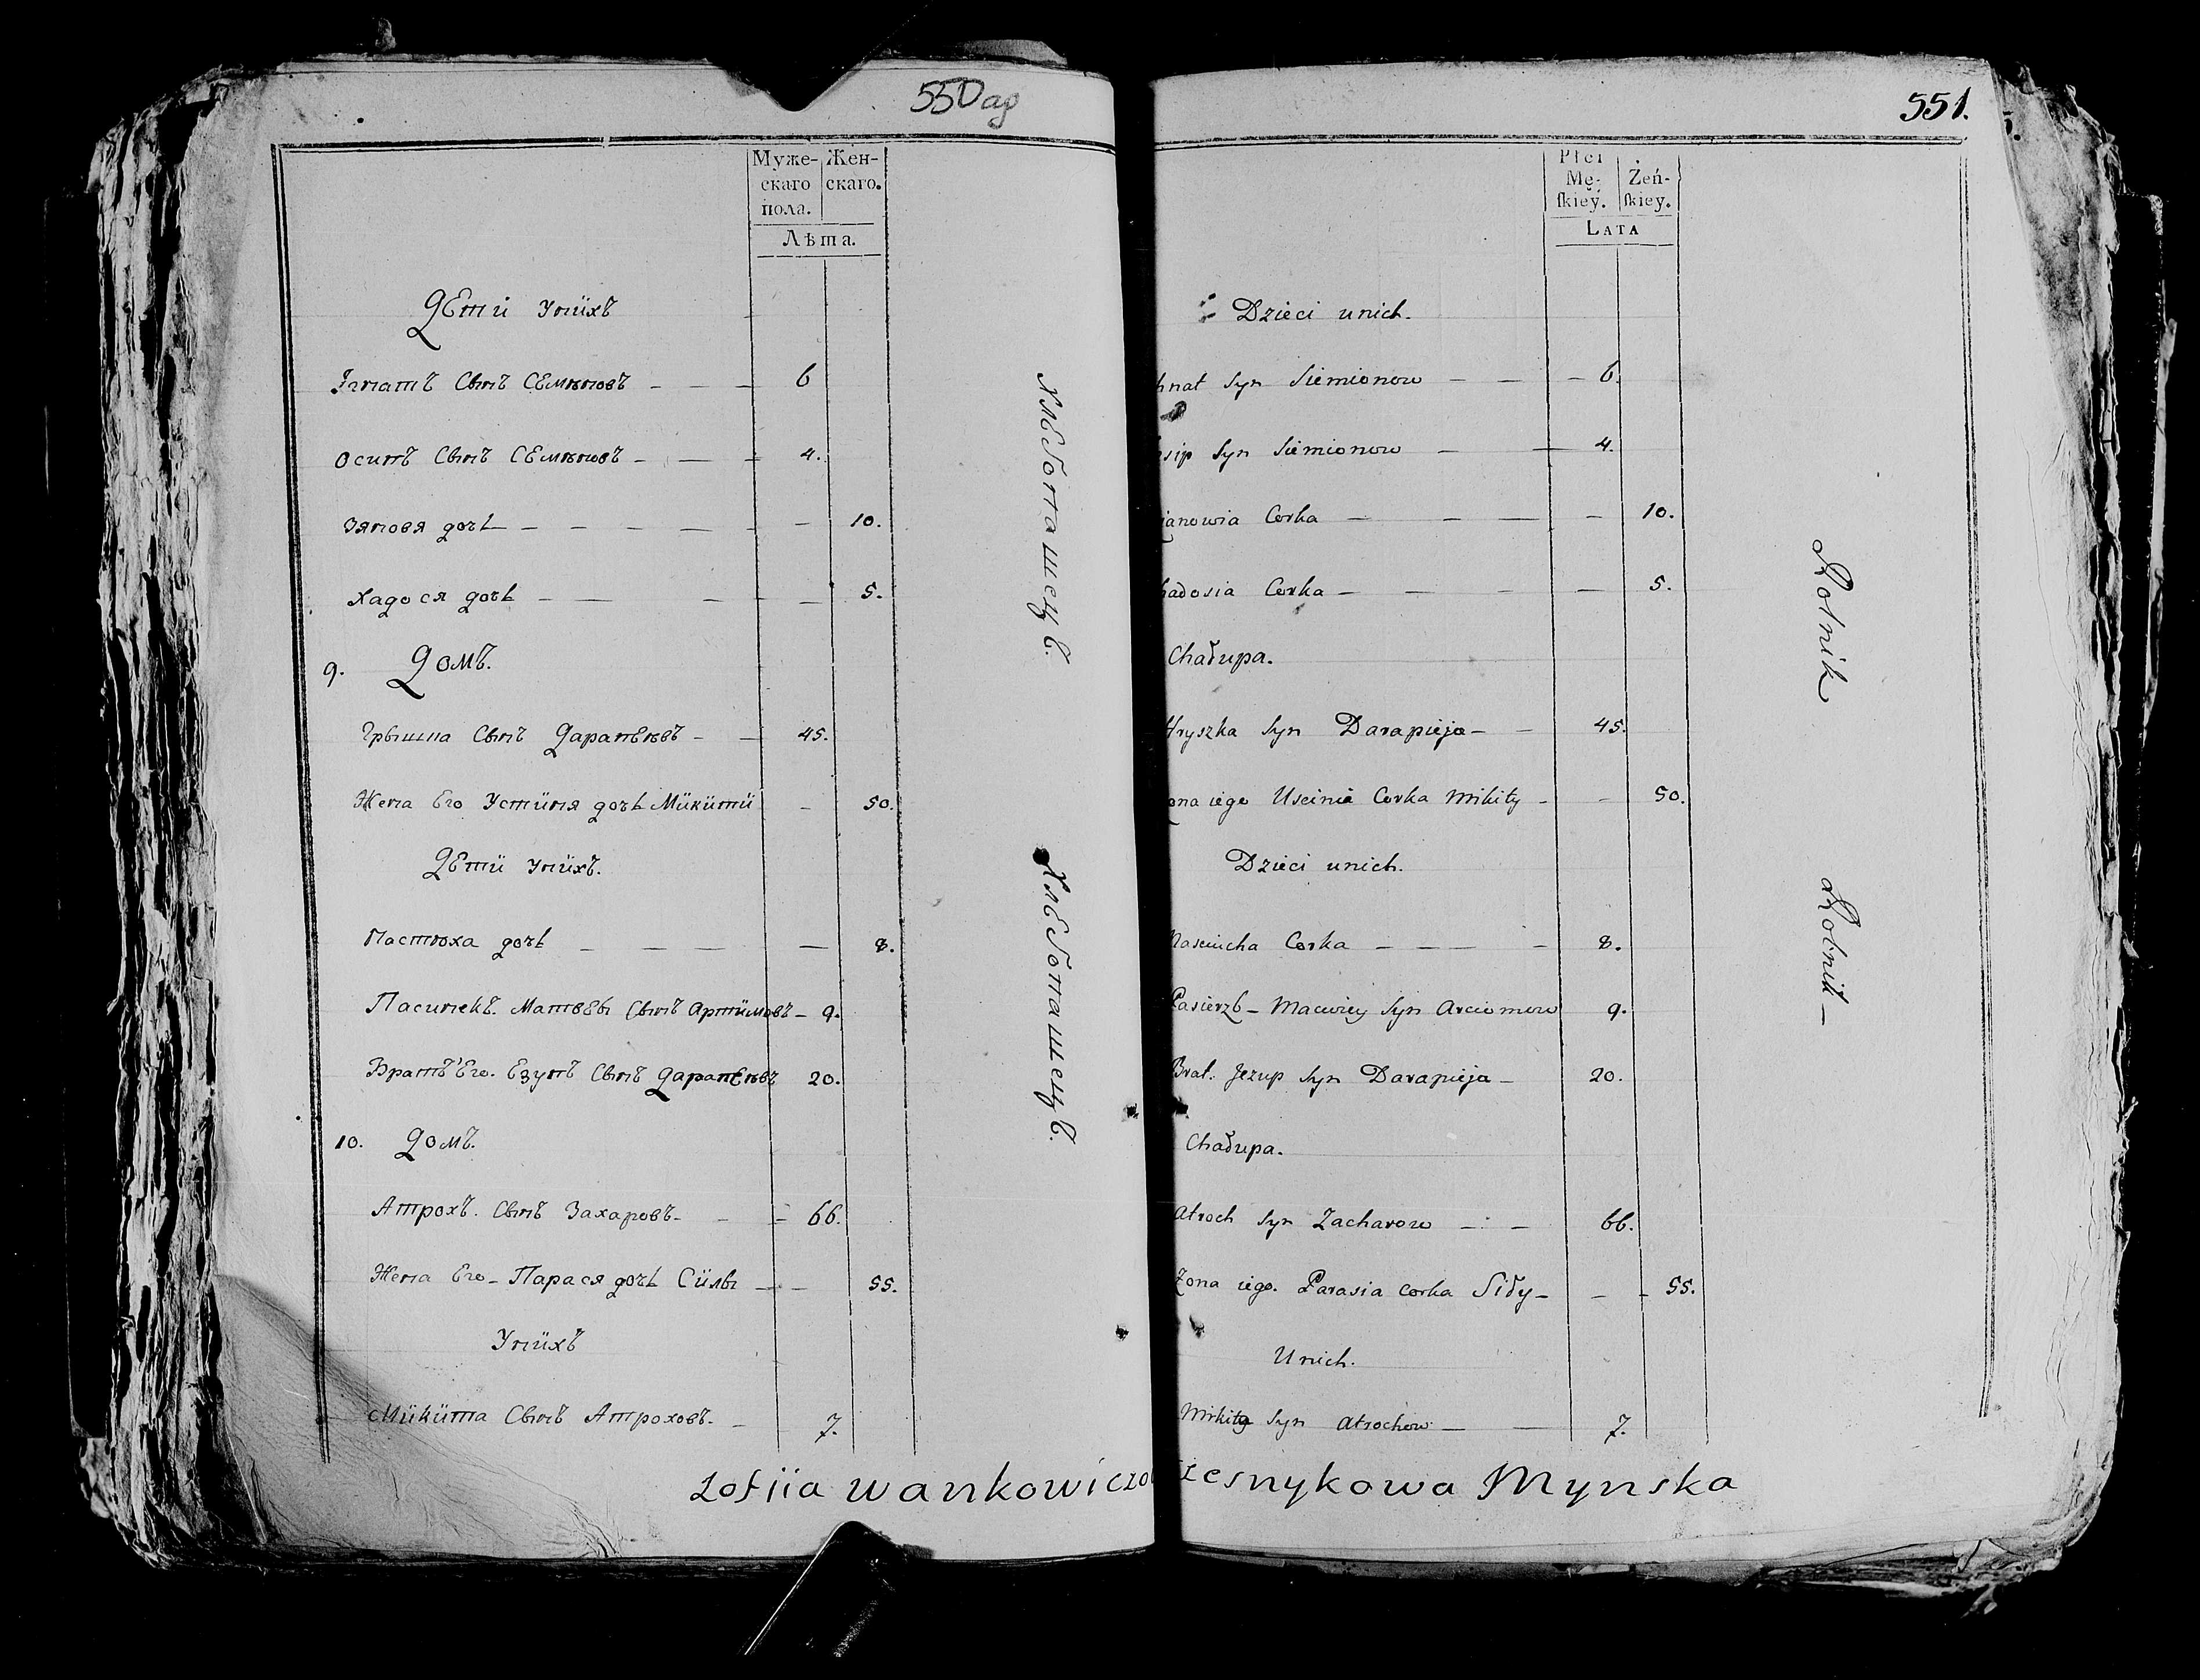 550 аg
Муже- Жен-
скаго скаго.
пола.
Лѣта.
Дети уніхъ
Ігнатъ Сынъ Семѣновъ 6
Осипъ Сынъ Семѣновъ 4.
Зяновя дочь 10.
Хадося дочь 5.
9. Домъ.
Грышка Сынъ Дарапеѣвъ 45.
Жена Его Устиня дочь Микити 50.
Дети унихъ.
Настюха дочь 8.
Пасинекъ. Матвеы Сынъ Артимовъ 9.
Братъ Его. Езупъ Сынъ Дарапеѣвъ 20.
10. Домъ.
Атрохъ. Сынъ Захаровъ 66.
Жена Его Парася дочь Силы 55.
Унихъ
Микита Сынъ Атроховъ. 7.
Хлебопашецъ.
Хлебопашецъ.
551.
Płci
Mę- Żeń-
ſkiey. ſkiey.
LATA
Dzieci unich.
hnat Syn Siemionow 6.
sip Syn Siemionow 4.
janowia Corka 10.
hadosia Corka 5.
Chałupa.
Hryszka Syn Darapieja 45.
ona iego Uscinia Corka Mikity 50.
Dzieci unich.
Nasciucha Corka 8.
Pasierzb Maciwiey Syn Arciomow 9.
Brat. Jezup Syn Darapieja 20.
Chałupa.
Atroch Syn Zacharow 66.
Zona iego. Parasia Corka Siły 55.
Unich.
Mikita Syn Atrochow 7.
Rolnik
Rolnik
Zofiia Wankowiczo zesnykowa Mynska